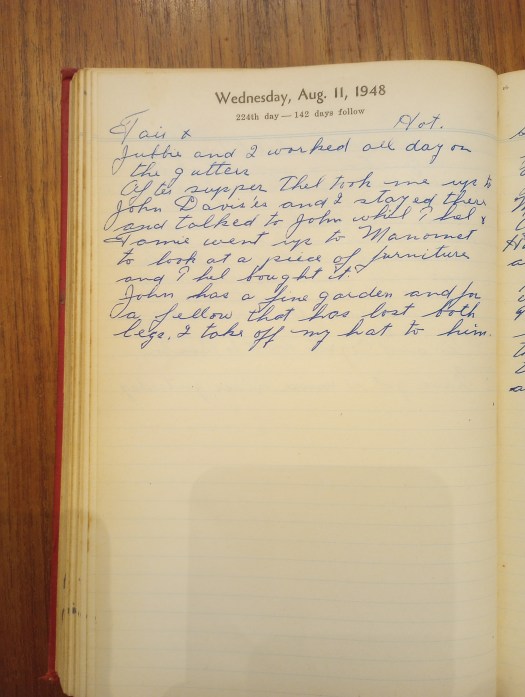 Wednesday, Aug. 11, 1948
224th day — 142 days follow
Fair & Hot.
and I worked all day on
the gutters
After supper Thel took me up to
John Davis'es and I stayed there
and talked to John while Thel &
went up to Manomet
to look at a piece of furniture
and Thel bought it.
John has a fine garden and for
a fellow that has lost both
legs. I take off my hat to him.